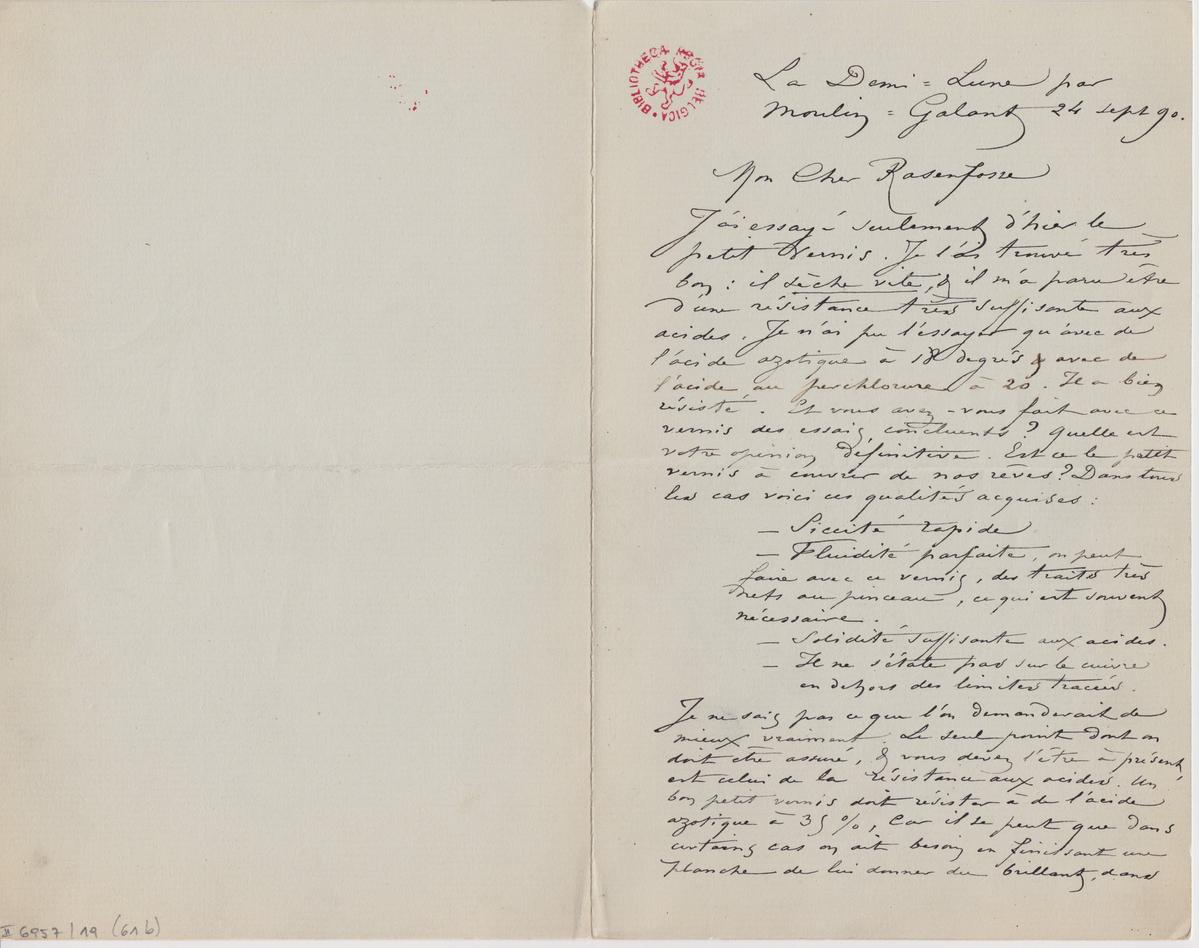 BIBLIOTHECA REGIA BELGICA
La Demi=Lune par
Moulin=Galant 24 sept 90.
Mon Cher Rasenfosse
J'ai essayé seulement d'hier le
petit vernis. Je l'ai trouvé très
bon : il sèche vite, & il m'a paru être
d'une résistance très suffisante aux
acides. Je n'ai pu l'essayer qu'avec de
l'acide azotique à 18 degrés & avec de
l'acide au perchlorure à 20. Il a bien
résisté. Et vous avez-vous fait avec ce
vernis des essais concluents ? Quelle est
votre opinion définitive. Est ce le petit
vernis à couvrir de nos rêves ? Dans tous
les cas voici ces qualités acquises :
— Siccité rapide
— Fluidité parfaite, on peut
faire avec ce vernis, des traits très
nets au pinceau, ce qui est souvent
nécessaire.
— Solidité suffisante aux acides.
— Il ne s'étale pas sur le cuivre
en dehors des limites tracées.
Je ne sais pas ce que l'on demanderait de
mieux vraiment. Le seul point dont on
doit être assuré, & vous devez l'être à présent,
est celui de la résistance aux acides. Un
bon petit vernis doit résister à de l'acide
azotique à 35 %, car il se peut que dans
certains cas on ait besoin en finissant une
planche de lui donner du brillant, dans
II 6957/19 (61b)